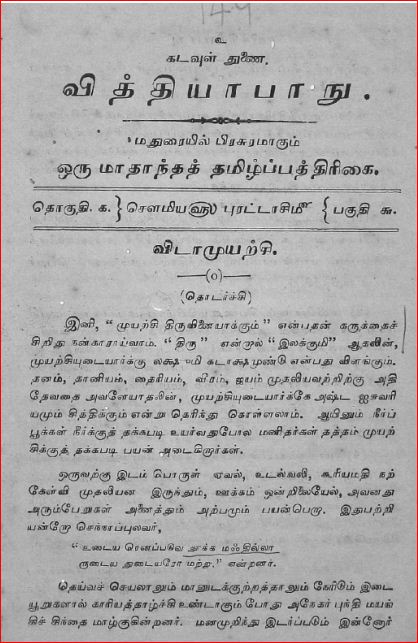 149
உ
கடவுள் துணை.
வித்தியாபாநு.
மதுரையில் பிரசுரமாகும்
ஒரு மாதாந்தத் தமிழ்ப்பத்திரிகை.
தொகுதி. க. } சௌமியவ௵ புரட்டாசிமீ { பகுதி
விடாமுயற்சி.
—(o)—
(தொடர்ச்சி)
இனி, “முயற்சி திருவினையாக்கும்” என்பதன் கருத்தைச்
சிறிது நன்காராய்வாம். “திரு” என்றால் “இலக்குமி” ஆதலின்,
முயற்சியுடையார்க்கு லக்ஷுமி கடாக்ஷமுண்டு என்பது விளங்கும்.
தனம், தானியம், தைரியம், வீரம், ஜயம் முதலியவற்றிற்கு அதி
தேவதை அவளேயாதலின், முயற்சியுடையார்க்கே அஷ்ட ஐசுவரி
யமும் சித்திக்கும் என்று தெரிந்து கொள்ளலாம். ஆயினும் நீர்ப்
பூக்கள் நீர்க்குத் தக்கபடி உயர்வதுபோல மனிதர்கள் தத்தம் முயற்
சிக்குத் தக்கபடி பயன் அடைகிறார்கள்.
ஒருவற்கு இடம் பொருள் ஏவல், உடல்வலி, கூரியமதி நற்
கேள்வி முதலியன இருந்தும், ஊக்கம் ஒன்றிலையேல், அவனது
அரும்பேறுகள் அனைத்தும் அற்பமும் பயன்பெறா. இதுபற்றி
யன்றோ செந்நாப்புலவர்,
“உடைய ரெனப்படுவ தூக்க மஃதில்லா
ருடைய துடையரோ மற்று.” என்றனர்.
தெய்வச் செயலாலும் மானுடக்குற்றத்தாலும் நேரிடும் இடை
யூறுகளால் காரியத்தாழ்ச்சி உண்டாகும் போது அநேகர் புந்தி மயங்
கிச் சிந்தை மாழ்குகின்றனர். மனமுறிந்து இடர்ப்படும் இன்னோர்